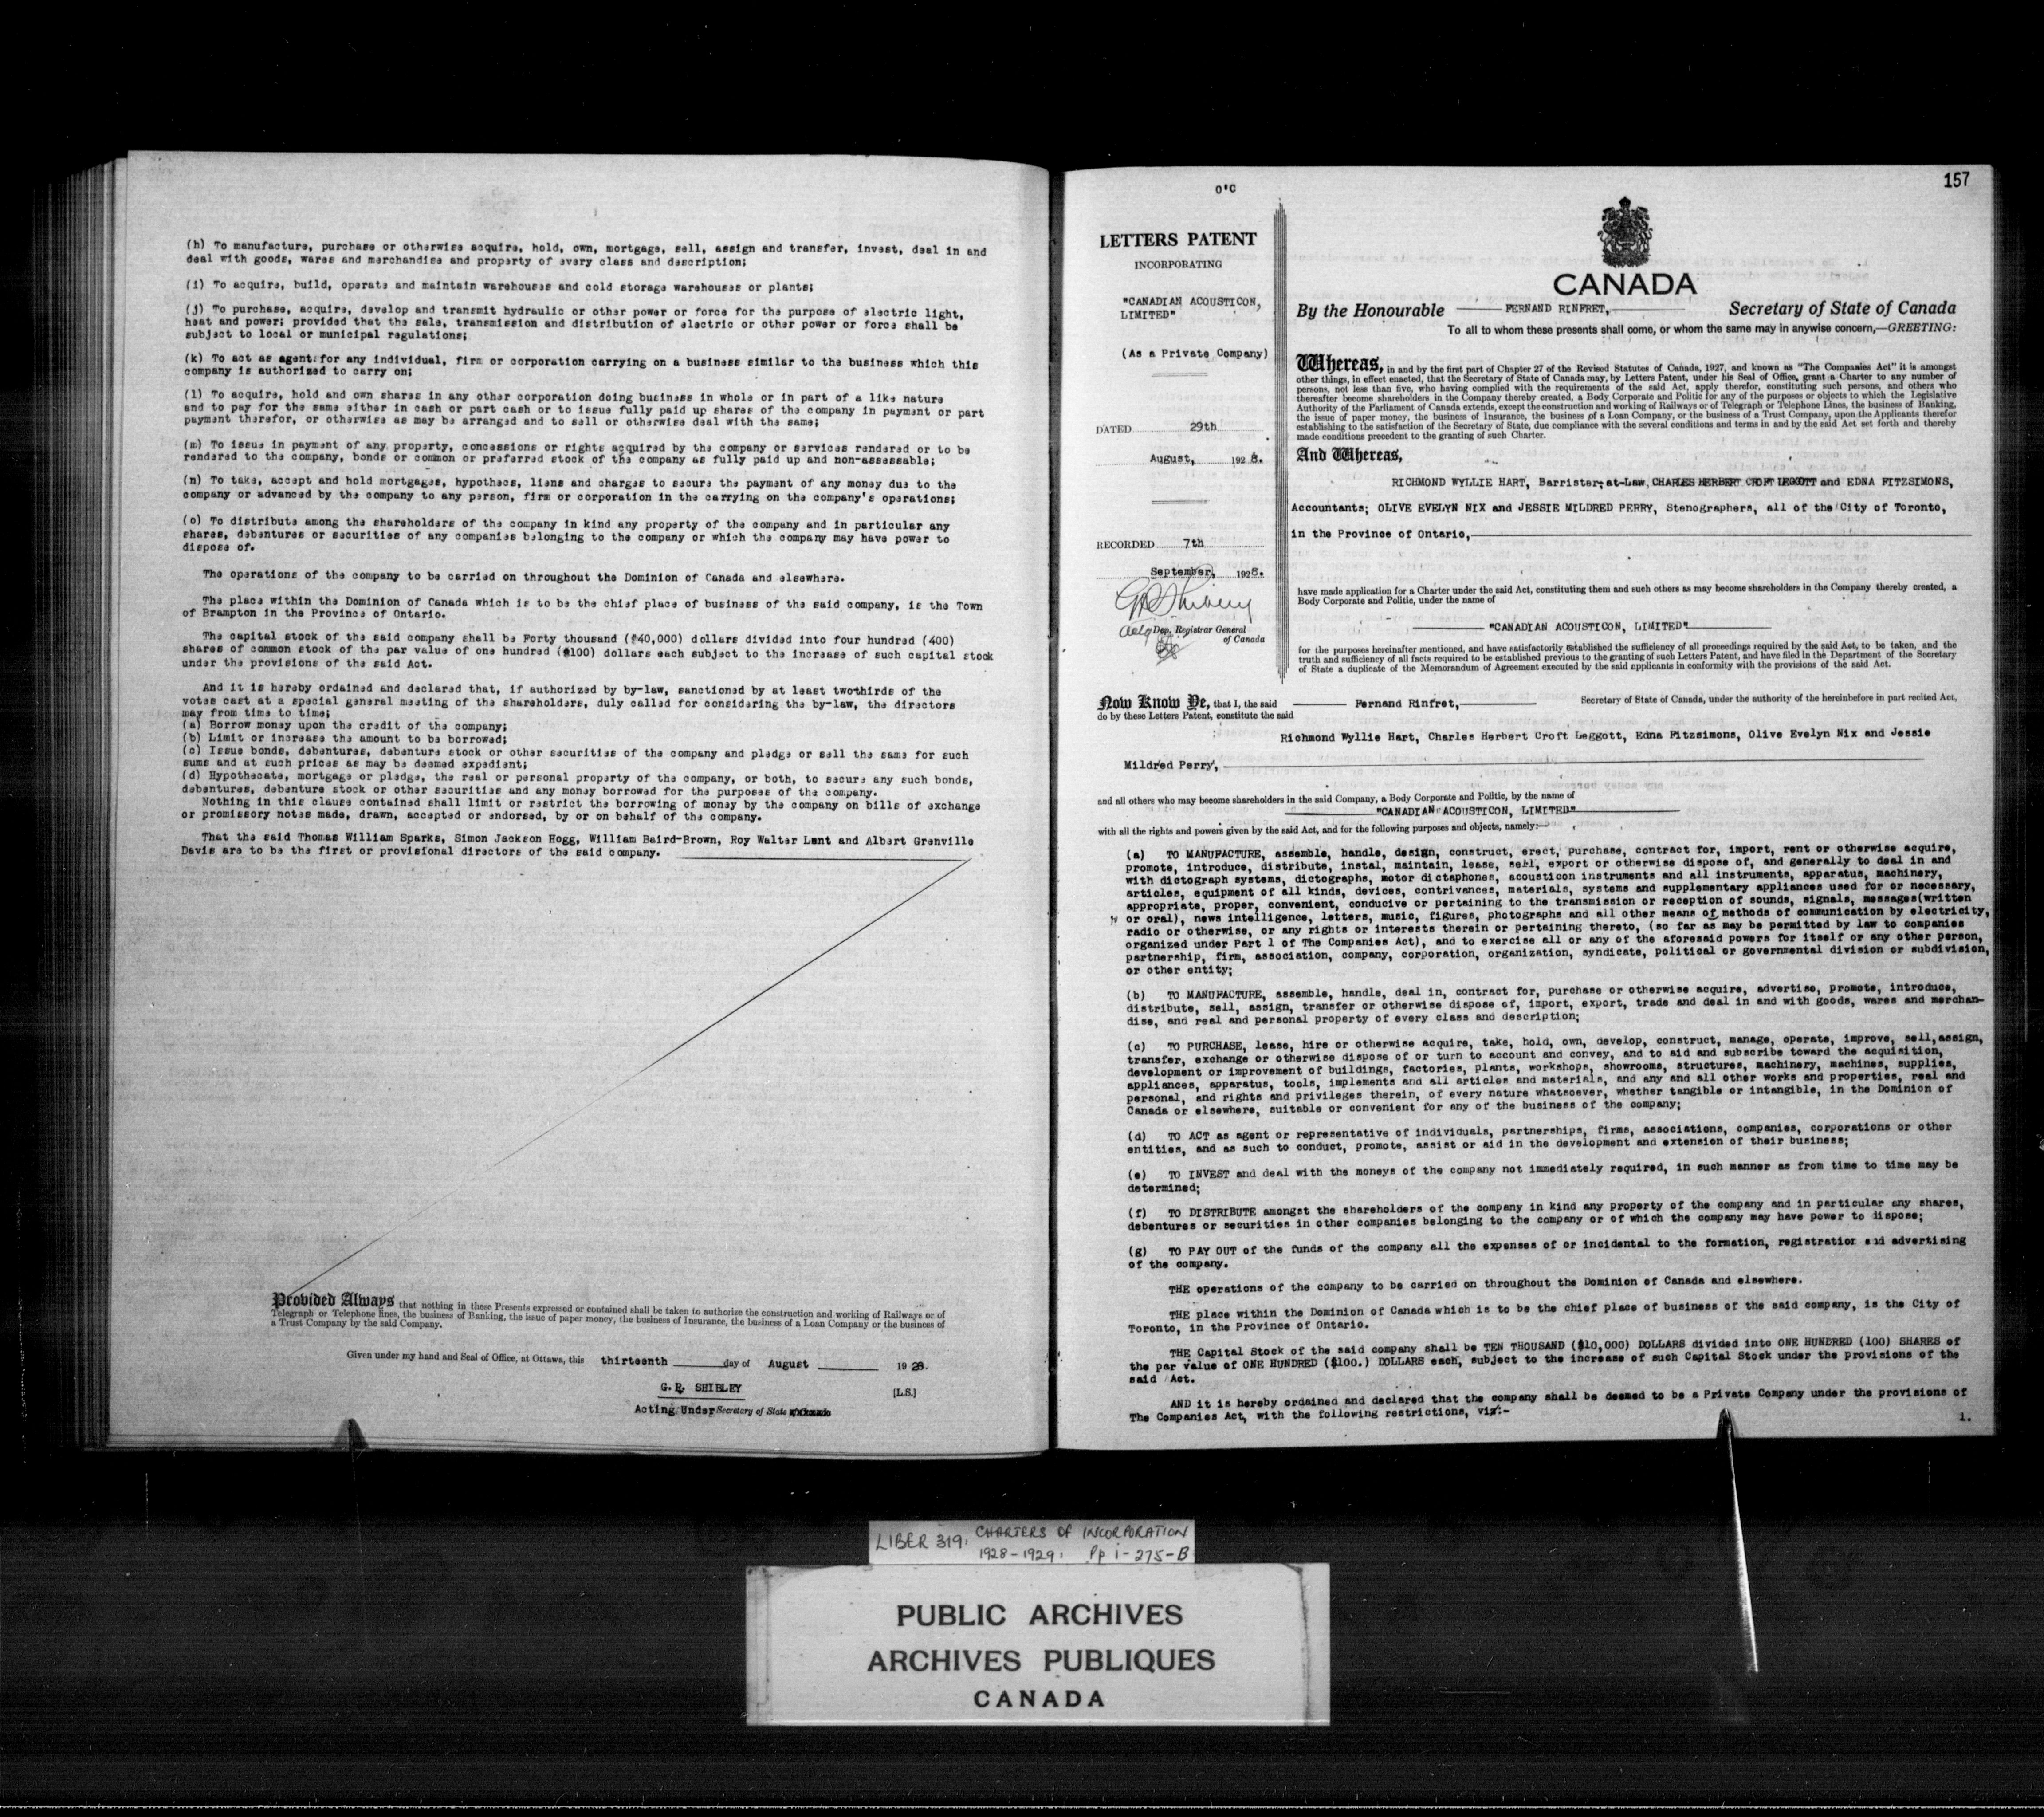 (h) To manufacture, purchase or otherwise acquire, hold, own, mortgage, sell, assign and transfer, invest, deal in and
deal with goods, wares and merchandise and property of every class and description;
(i) To acquire, build, operate and maintain warehouses and cold storage warehouses or plants;
(j) To purchase, acquire, develop and transmit hydraulic or other power or force for the purpose of electric light,
heat and power; provided that the sale, transmission and distribution of electric or other power or force shall be
subject to local or municipal regulations;
(k) To act as agent for any individual, firm or corporation carrying on a business similar to the business which this
company is authorized to carry on;
(l) To acquire, hold and own shares in any other corporation doing business in whole or in part of a like nature
and to pay for the same either in cash or part cash or to issue fully paid up shares of the company in payment or part
payment therefor, or otherwise as may be arranged and to sell or otherwise deal with the same;
(m) To issue in payment of any property, concessions or rights acquired by the company or services rendered or to be
rendered to the company, bonds or common or preferred stock of the company as fully paid up and non-assessable;
(n) To take, accept and hold mortgages, hypothecs, liens and charges to secure the payment of any money due to the
company or advanced by the company to any person, firm or corporation in the carrying on the company's operations;
(o) To distribute among the shareholders of the company in kind any property of the company and in particular any
shares, debentures or securities of any companies belonging to the company or which the company may have power to
dispose of.
The operations of the company to be carried on throughout the Dominion of Canada and elsewhere.
The place within the Dominion of Canada which is to be the chief place of business of the said company, is the Town
of Brampton in the Province of Ontario.
The capital stock of the said company shall be Forty thousand ($40,000) dollars divided into four hundred (400)
shares of common stock of the par value of one hundred ($100) dollars each subject to the increase of such capital stock
under the provisions of the said Act.
And it is hereby ordained and declared that, if authorized by by-law, sanctioned by at least twothirds of the
votes cast at a special general meeting of the shareholders, duly called for considering the by-law, the directors
may from time to time;
(a) Borrow money upon the credit of the company;
(b) Limit or increase the amount to be borrowed;
(c) Issue bonds, debentures, debenture stock or other securities of the company and pledge or sell the same for such
sums and at such prices as may be deemed expedient;
(d) Hypothecate, mortgage or pledge, the real or personal property of the company, or both, to secure any such bonds,
debentures, debenture stock or other securities and any money borrowed for the purposes of the company.
Nothing in this clause contained shall limit or restrict the borrowing of money by the company on bills of exchange
or promissory notes made, drawn, accepted or endorsed, by or on behalf of the company.
That the said Thomas William Sparks, Simon Jackson Hogg, William Baird-Brown, Roy Walter Lent and Albert Grenville
Davis are to be the first or provisional directors of the said company.
Provided Always that nothing in these Presents expressed or contained shall be taken to authorize the construction and working of Railways or of
Telegraph or Telephone lines, the business of Banking, the issue of paper money, the business of Insurance, the business of a Loan Company or the business of
a Trust Company by the said Company.
Given under my hand and Seal of Office, at Ottawa, this thirteenth day of August 1928.
G. R. SHIBLEY
[L.S.]
Acting Under Secretary of State
157
O'C
LETTERS PATENT
INCORPORATING
"CANADIAN ACOUSTICON,
LIMITED"
(As a Private Company)
DATED 29th
August, 1928.
RECORDED 7th
September, 1928.
GR Shibley
Dep. Registrar General
of Canada
CANADA
By the Honourable FERNAND RINFRET, Secretary of State of Canada
To all to whom these presents shall come, or whom the same may in anywise concern,—GREETING:
Whereas, in and by the first part of Chapter 27 of the Revised Statutes of Canada, 1927, and known as "The Companies Act" it is amongst
other things, in effect enacted, that the Secretary of State of Canada may, by Letters Patent, under his Seal of Office, grant a Charter to any number of
persons, not less than five, who having complied with the requirements of the said Act, apply therefor, constituting such persons, and others who
thereafter become shareholders in the Company thereby created, a Body Corporate and Politic for any of the purposes or objects to which the Legislative
Authority of the Parliament of Canada extends, except the construction and working of Railways or of Telegraph or Telephone Lines, the business of Banking,
the issue of paper money, the business of Insurance, the business of a Loan Company, or the business of a Trust Company, upon the Applicants therefor
establishing to the satisfaction of the Secretary of State, due compliance with the several conditions and terms in and by the said Act set forth and thereby
made conditions precedent to the granting of such Charter.
And Whereas,
RICHMOND WYLLIE HART, Barrister-at-Law, CHARLES HERBERT CROFT LEGGOTT and EDNA FITZSIMONS,
Accountants; OLIVE EVELYN NIX and JESSIE MILDRED PERRY, Stenographers, all of the City of Toronto,
in the Province of Ontario,
have made application for a Charter under the said Act, constituting them and such others as may become shareholders in the Company thereby created, a
Body Corporate and Politic, under the name of
"CANADIAN ACOUSTICON, LIMITED"
for the purposes hereinafter mentioned, and have satisfactorily established the sufficiency of all proceedings required by the said Act, to be taken, and the
truth and sufficiency of all facts required to be established previous to the granting of such Letters Patent, and have filed in the Department of the Secretary
of State a duplicate of the Memorandum of Agreement executed by the said applicants in conformity with the provisions of the said Act.
Now Know Ye, that I, the said Fernand Rinfret, Secretary of State of Canada, under the authority of the hereinbefore in part recited Act,
do by these Letters Patent, constitute the said
Richmond Wyllie Hart, Charles Herbert Croft Leggott, Edna Fitzsimons, Olive Evelyn Nix and Jessie
Mildred Perry,
and all others who may become shareholders in the said Company, a Body Corporate and Politic, by the name of
"CANADIAN ACOUSTICON, LIMITED"
with all the rights and powers given by the said Act, and for the following purposes and objects, namely:—
(a) TO MANUFACTURE, assemble, handle, design, construct, erect, purchase, contract for, import, rent or otherwise acquire,
promote, introduce, distribute, instal, maintain, lease, sell, export or otherwise dispose of, and generally to deal in and
with dictograph systems, dictographs, motor dictaphones, acousticon instruments and all instruments, apparatus, machinery,
articles, equipment of all kinds, devices, contrivances, materials, systems and supplementary appliances used for or necessary,
appropriate, proper, convenient, conducive or pertaining to the transmission or reception of sounds, signals, messages(written
or oral), news intelligence, letters, music, figures, photographs and all other means of methods of communication by electricity,
radio or otherwise, or any rights or interests therein or pertaining thereto, (so far as may be permitted by law to companies
organized under Part 1 of The Companies Act), and to exercise all or any of the aforesaid powers for itself or any other person,
partnership, firm, association, company, corporation, organization, syndicate, political or governmental division or subdivision,
or other entity;
(b) TO MANUFACTURE, assemble, handle, deal in, contract for, purchase or otherwise acquire, advertise, promote, introduce,
distribute, sell, assign, transfer or otherwise dispose of, import, export, trade and deal in and with goods, wares and merchan-
dise, and real and personal property of every class and description;
(c) TO PURCHASE, lease, hire or otherwise acquire, take, hold, own, develop, construct, manage, operate, improve, sell, assign,
transfer, exchange or otherwise dispose of or turn to account and convey, and to aid and subscribe toward the acquisition,
development or improvement of buildings, factories, plants, workshops, showrooms, structures, machinery, machines, supplies,
appliances, apparatus, tools, implements and all articles and materials, and any and all other works and properties, real and
personal, and rights and privileges therein, of every nature whatsoever, whether tangible or intangible, in the Dominion of
Canada or elsewhere, suitable or convenient for any of the business of the company;
(d) TO ACT as agent or representative of individuals, partnerships, firms, associations, companies, corporations or other
entities, and as such to conduct, promote, assist or aid in the development and extension of their business;
(e) TO INVEST and deal with the moneys of the company not immediately required, in such manner as from time to time may be
determined;
(f) TO DISTRIBUTE amongst the shareholders of the company in kind any property of the company and in particular any shares,
debentures or securities in other companies belonging to the company or of which the company may have power to dispose;
(g) TO PAY OUT of the funds of the company all the expenses of or incidental to the formation, registration and advertising
of the company.
THE operations of the company to be carried on throughout the Dominion of Canada and elsewhere.
THE place within the Dominion of Canada which is to be the chief place of business of the said company, is the City of
Toronto, in the Province of Ontario.
THE Capital Stock of the said company shall be TEN THOUSAND ($10,000) DOLLARS divided into ONE HUNDRED (100) SHARES of
the par value of ONE HUNDRED ($100.) DOLLARS each, subject to the increase of such Capital Stock under the provisions of the
said Act.
AND it is hereby ordained and declared that the company shall be deemed to be a Private Company under the provisions of
The Companies Act, with the following restrictions, viz:-
1.
LIBER 319: CHARTERS OF INCORPORATION
1928-1929: Pp i-275-B
PUBLIC ARCHIVES
ARCHIVES PUBLIQUES
CANADA